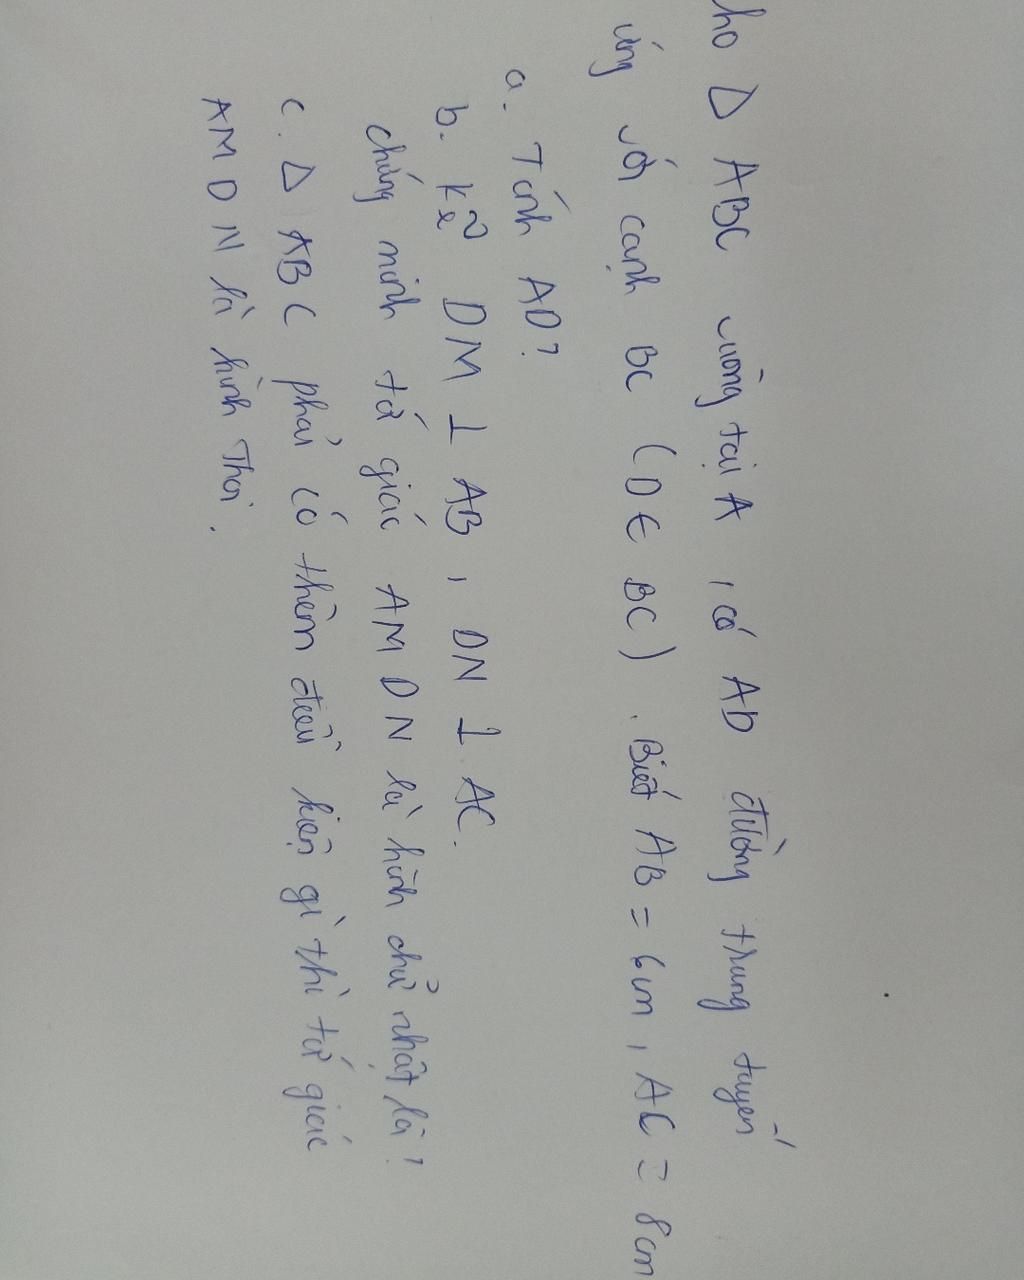 ho Δ ABC vuông tại A , có AD đường trung tuyến
ứng với cạnh BC ( D ∈ BC ) . Biết AB = 6cm , AC = 8cm
a. Tính AD?
b. kẽ DM ⊥ AB , DN ⊥ AC.
chứng minh tứ giác AMDN là hình chử nhật là?
c. Δ ABC phải có thêm điều kiện gì thì tứ giác
AMDN là hình thoi.